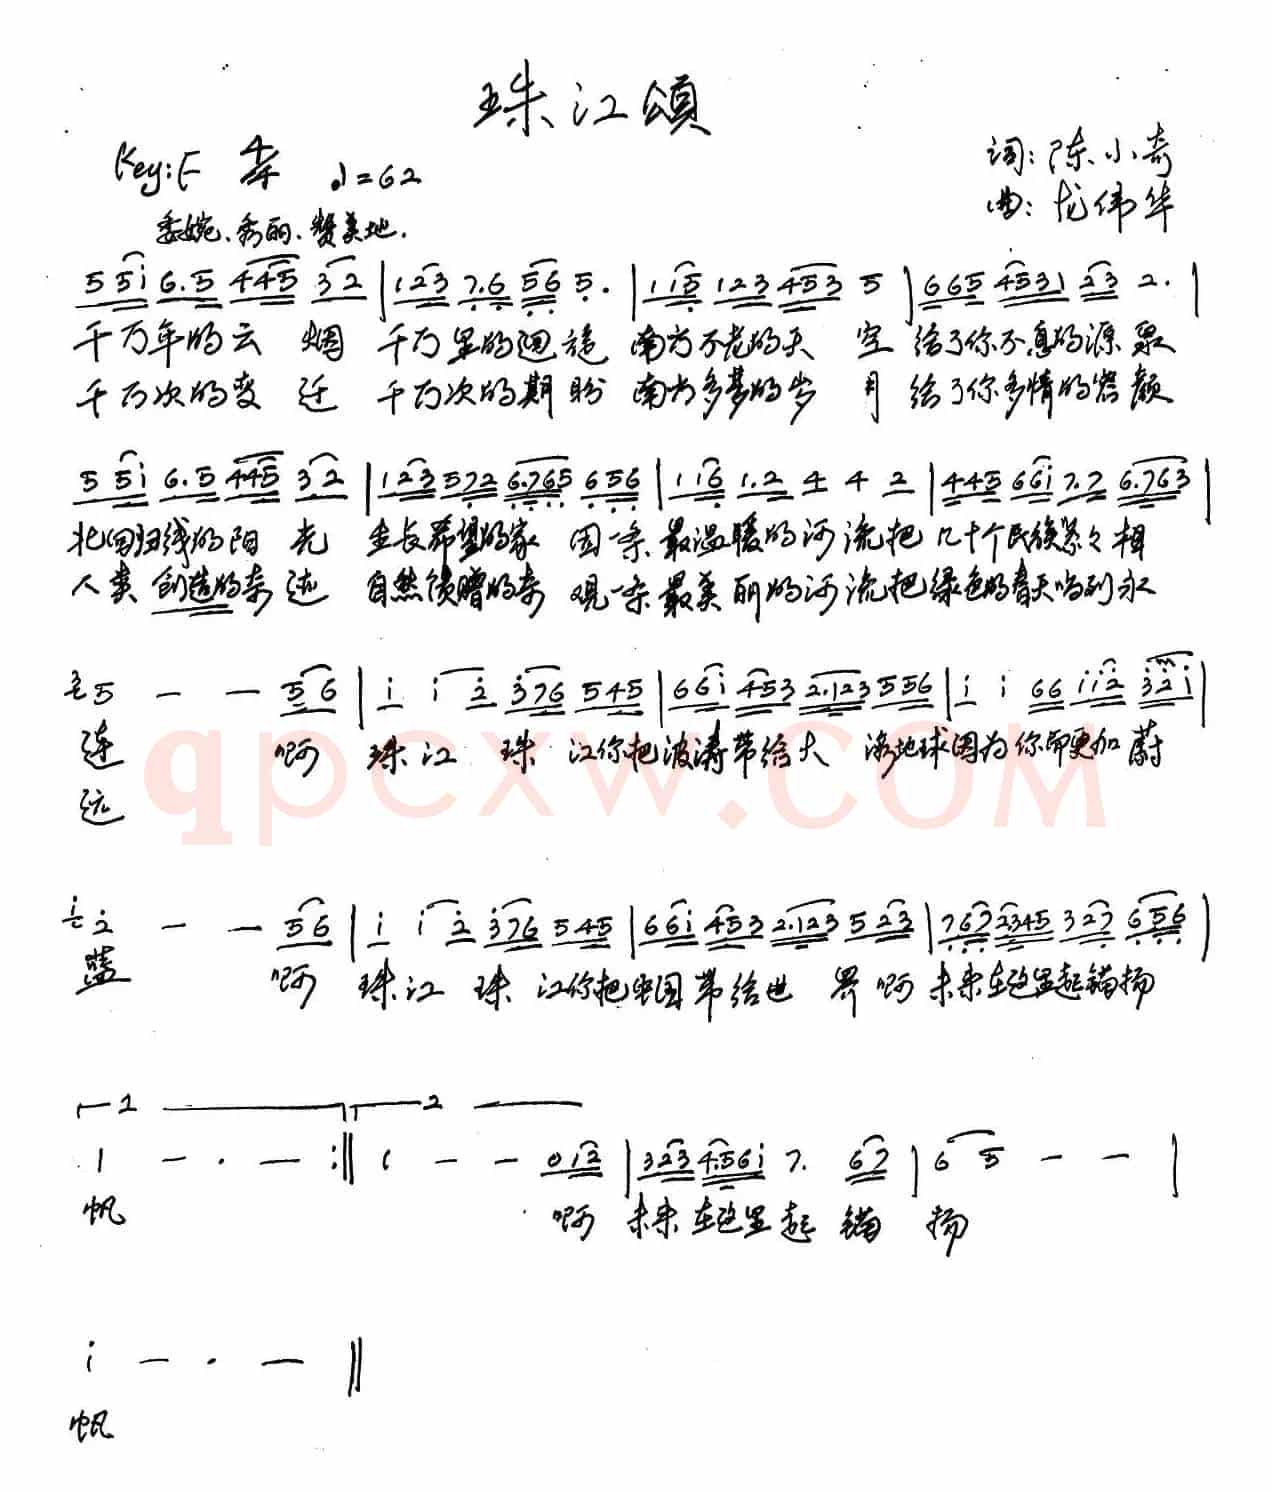 珠江頌
Key:F 4/4 ♩=62
词:陈小奇
曲:龙伟华
委婉、秀丽、赞美地.
5 5 i 6.5 4 4 5 3 2 | 1 2 3 7.6 5 6 5. | 1 1 5 1 2 3 4 5 3 5 | 6 6 5 4 5 3 1 2 3 2. |
千万年的云 烟 千万里的迴旋 南方不老的天 空 给了你不息的源泉
千万次的变 迁 千万次的期盼 南方多梦的岁 月 给了你多情的容颜
5 5 i 6.5 4 4 5 3 2 | 1 2 3 5 7 2 6.7 6 5 6 5 6 | 1 1 6 1.2 4 4 2 | 4 4 5 6 6 i 7.7 6.7 6 3 |
北回归线的阳 光 生长希望的家 园一条最温暖的河流把几十个民族紧々相
人类创造的奇迹 自然馈赠的奇 观一条最美丽的河流把绿色的春天唱到永
3 5 — — 5 6 | i i 2 3 7 6 5 4 5 | 6 6 i 4 5 3 2.1 2 3 5 5 6 | i i 6 6 i i 2 3 2 i |
连 啊 珠江 珠 江你把波涛带给大 海地球因为你而更加蔚
远
qpcxw.com
i 2 — — 5 6 | i i 2 3 7 6 5 4 5 | 6 6 i 4 5 3 2.1 2 3 5 2 3 | 7 6 7 2 3 4 5 3 2 7 6 5 6 |
蓝 啊 珠江 珠 江你把中国带给世 界啊未来在这里起锚扬
1 2
1 — · — :‖ 1 — — 0 i 2 | 3 2 3 4.5 6 i 7. 6 7 | 6 5 — — |
帆 啊 未来在这里起 锚 扬
i — · — ‖
帆